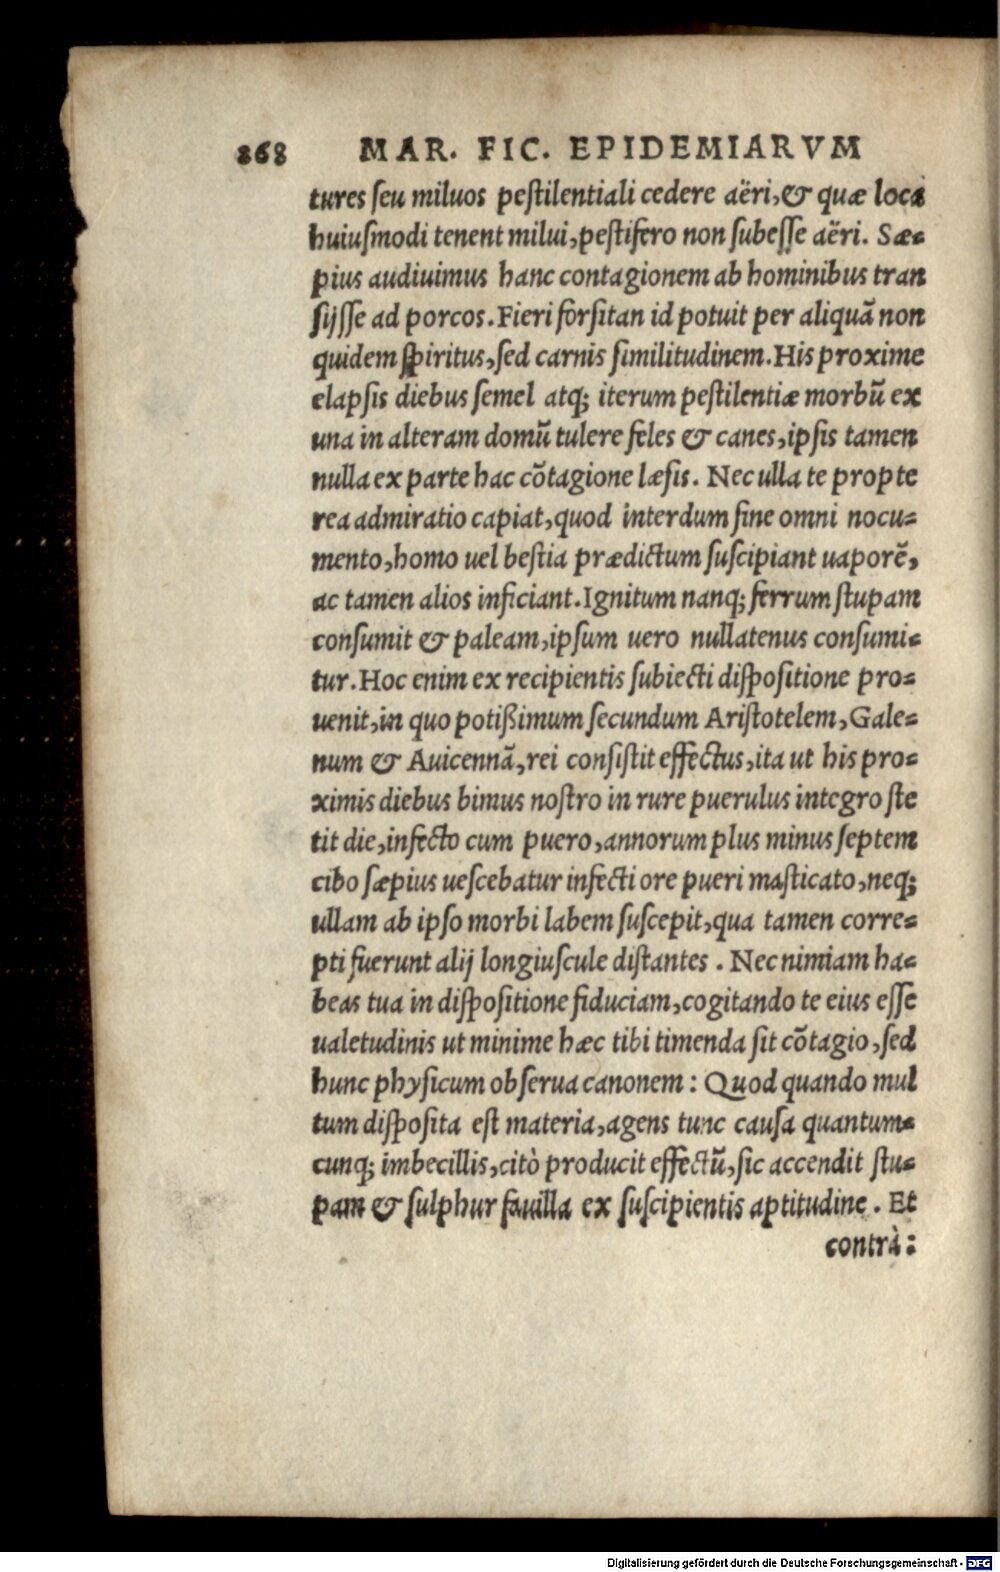 868 MAR. FIC. EPIDEMIARVM
tures ſeu miluos peſtilentiali cedere aëri,& quæ loca
huiuſmodi tenent milui,peſtifero non ſubeſſe aëri. Sæ=
pius audiuimus hanc contagionem ab hominibus tran
ſijſſe ad porcos.Fieri forſitan id potuit per aliquā non
quidem ſpiritus,ſed carnis ſimilitudinem.His proxime
elapſis diebus ſemel atq; iterum peſtilentiæ morbū ex
una in alteram domū tulere feles & canes,ipſis tamen
nulla ex parte hac cōtagione læſis. Nec ulla te propte
rea admiratio capiat,quod interdum ſine omni nocu=
mento,homo uel beſtia prædictum ſuſcipiant uaporē,
ac tamen alios inficiant.Ignitum nanq; ferrum ſtupam
conſumit & paleam,ipſum uero nullatenus conſumi=
tur.Hoc enim ex recipientis ſubiecti diſpoſitione pro=
uenit,in quo potißimum ſecundum Ariſtotelem,Gale=
num & Auicennā,rei conſiſtit effectus,ita ut his pro=
ximis diebus bimus noſtro in rure puerulus integro ſte
tit die,infecto cum puero,annorum plus minus ſeptem
cibo ſæpius ueſcebatur infecti ore pueri maſticato,neq;
ullam ab ipſo morbi labem ſuſcepit,qua tamen corre=
pti fuerunt alij longiuſcule diſtantes . Nec nimiam ha=
beas tua in diſpoſitione fiduciam,cogitando te eius eſſe
ualetudinis ut minime hæc tibi timenda ſit cōtagio,ſed
hunc phyſicum obſerua canonem : Quod quando mul
tum diſpoſita eſt materia,agens tunc cauſa quantum=
cunq; imbecillis,citò producit effectū,ſic accendit ſtu=
pam & ſulphur fauilla ex ſuſcipientis aptitudine . Et
contrà:
Digitalisierung gefördert durch die Deutsche Forschungsgemeinschaft - DFG